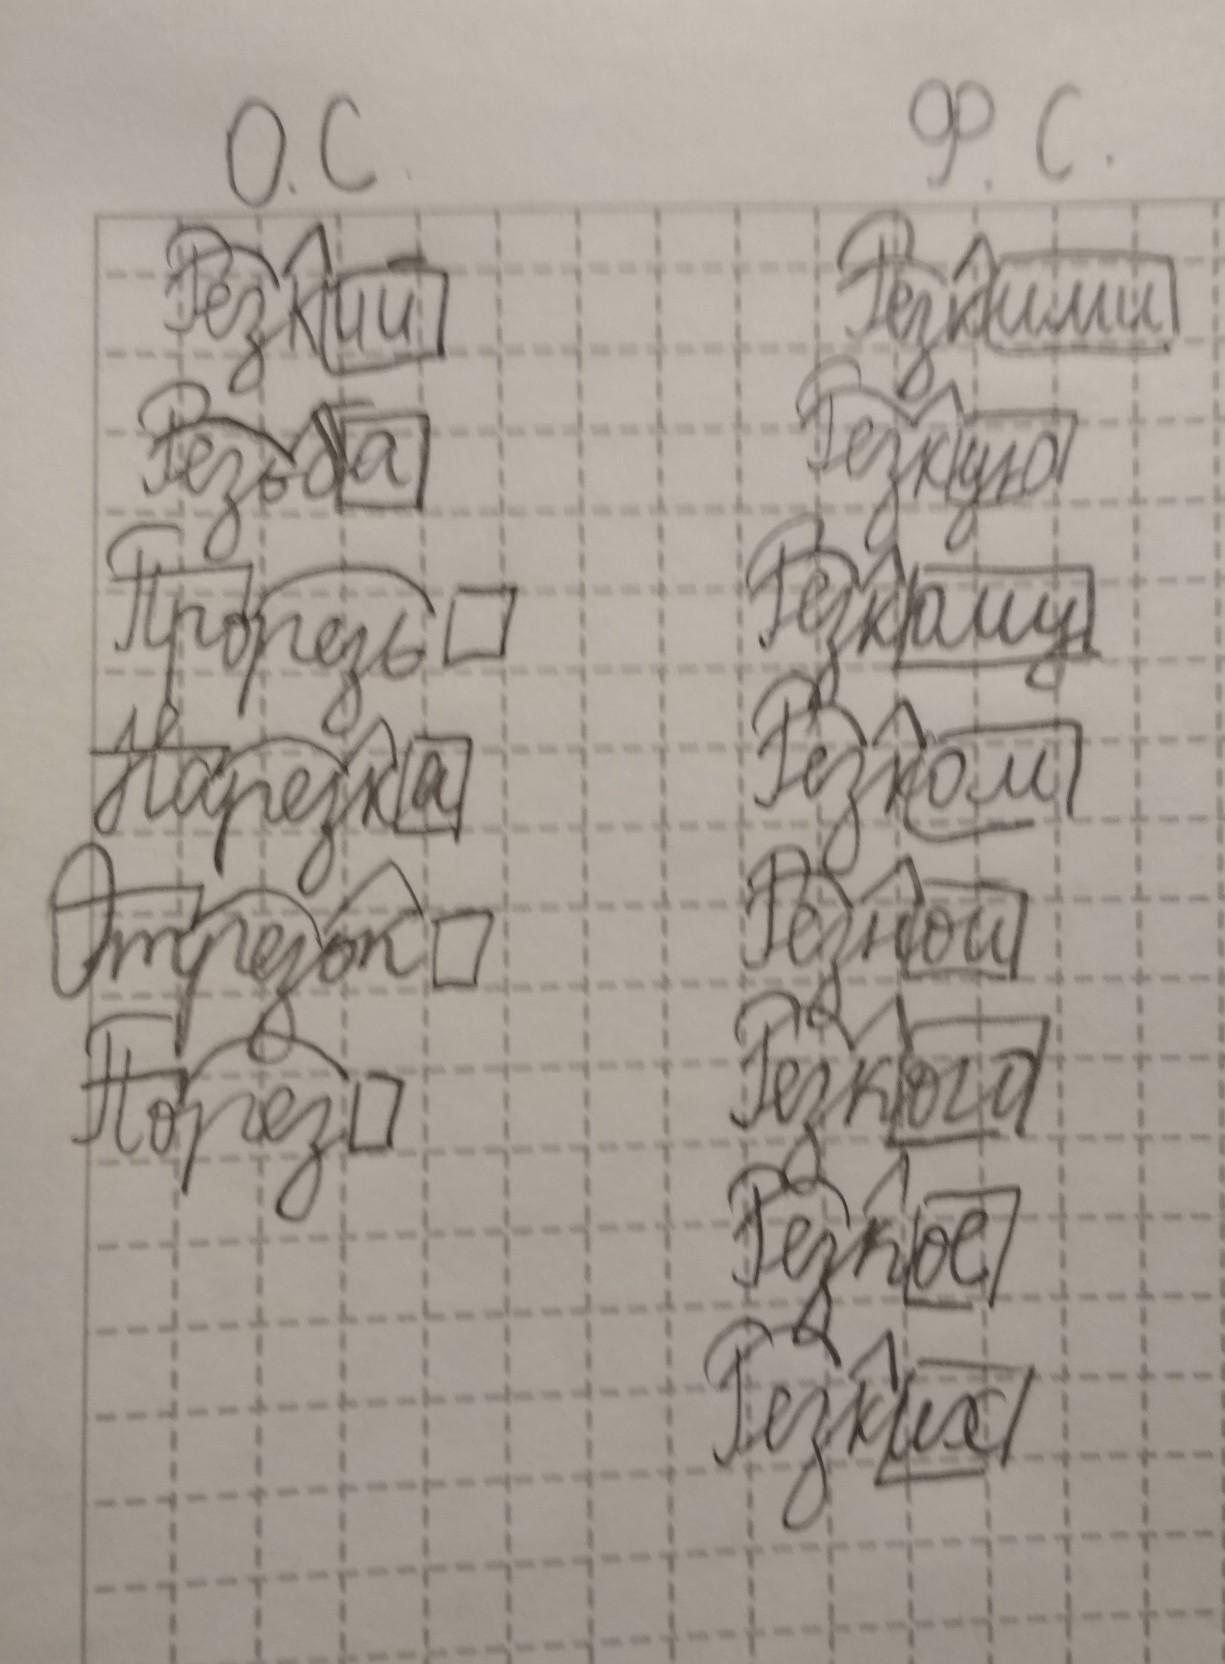 О.С. Ф.С.
Резкий Резкими
Резьба Резкую
Прорезь Резкому
Нарезка Резком
Отрезок Резной
Порез Резкого
Резкое
Резких